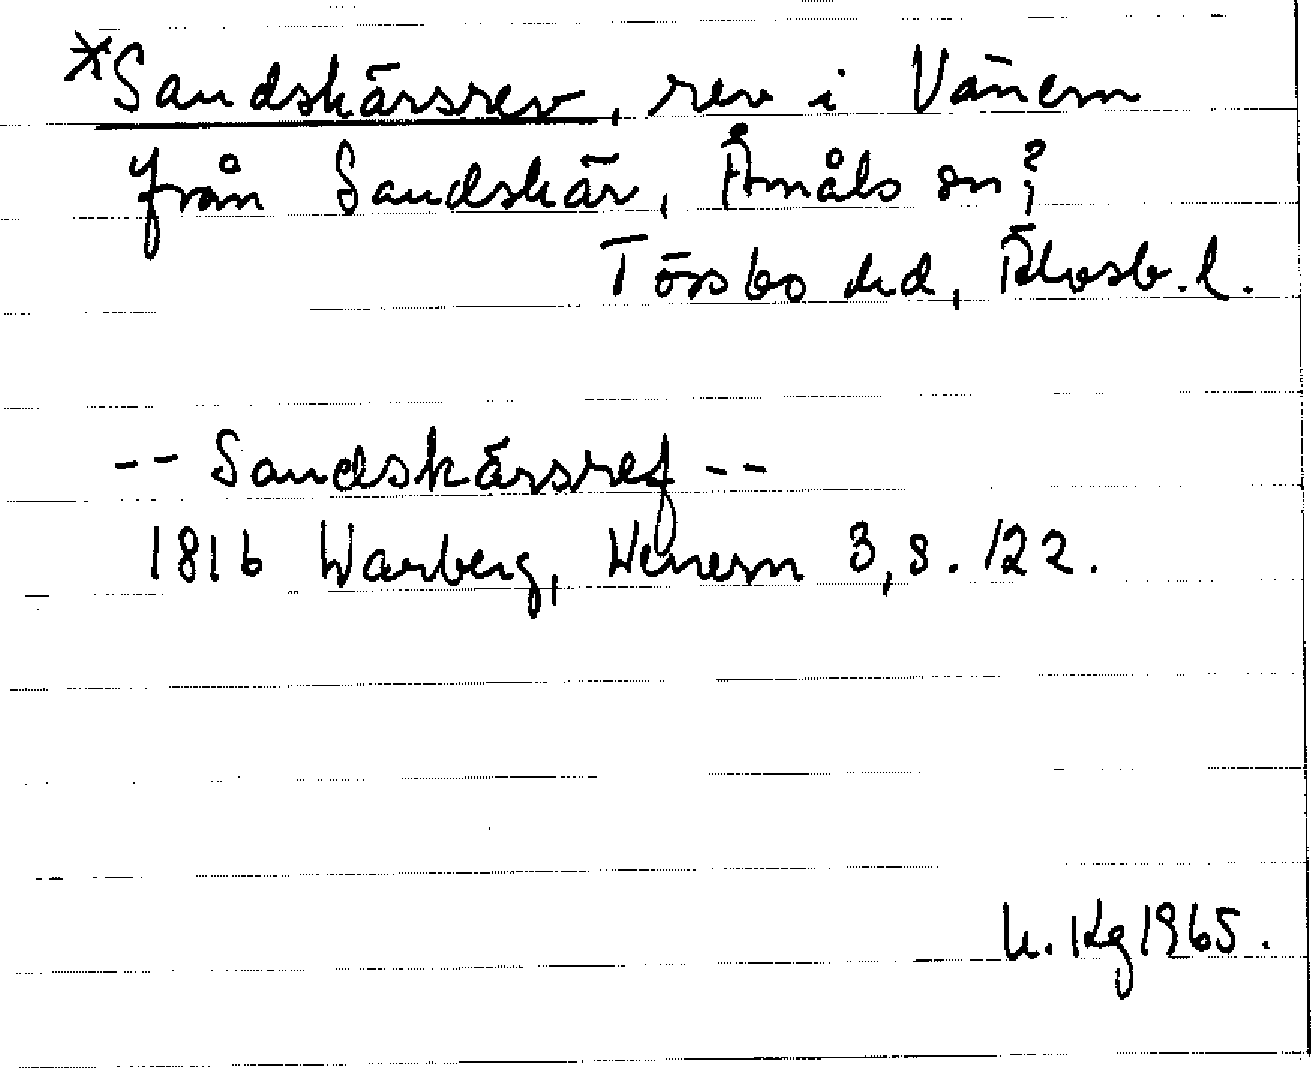 *Sandskärsrev, rev i Vänern
från Sandskär, Åmåls sn?,
Tössbo hd, Älvsb.l.
-- Sandskärsref --
1816 Warberg, Wenern 3, s. 122.
h. Kg 1965.